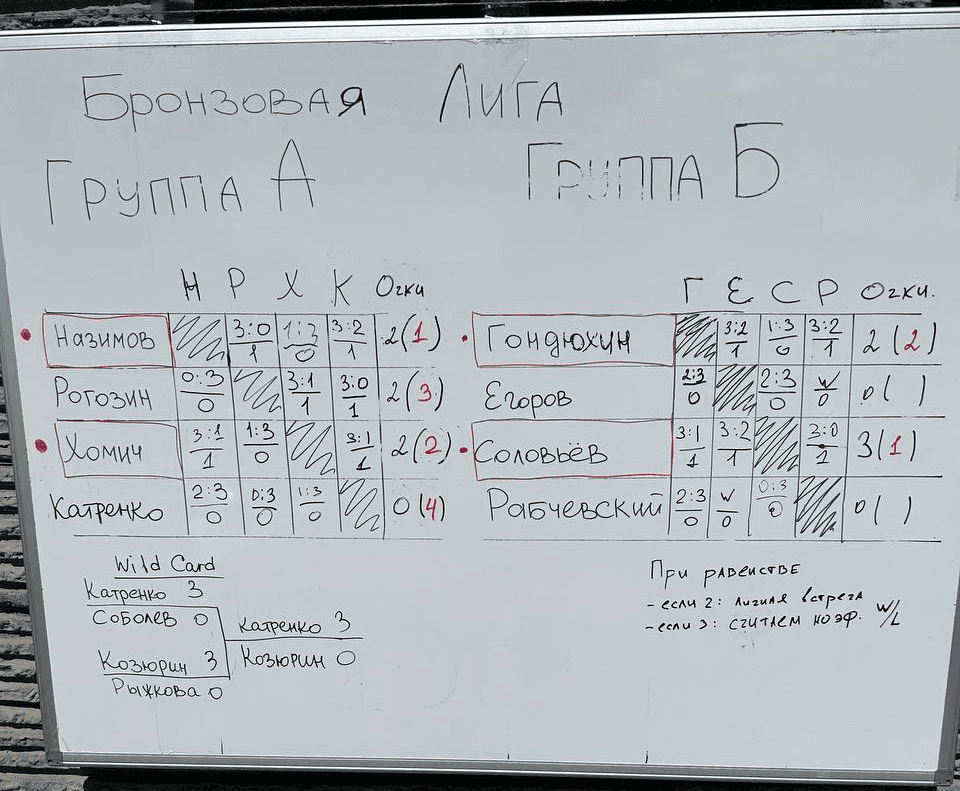 Бронзовая Лига
Группа А
Группа Б
Н Р Х К Очки
Назимов 3:0 1 1:3 0 3:2 1 2(1)
Рогозин 0:3 0 3:1 1 3:0 1 2(3)
Хомич 3:1 1 1:3 0 3:1 1 2(2)
Катренко 2:3 0 0:3 0 1:3 0 0(4)
Г Е С Р Очки.
Гондюхин 3:2 1 1:3 0 3:2 1 2(2)
Егоров 2:3 0 2:3 0 W 0 0( )
Соловьёв 3:1 1 3:2 1 3:0 1 3(1)
Рабчевский 2:3 0 W 0 0:3 0 0( )
Wild Card
Катренко 3
Соболев 0
Козюрин 3
Рыжкова 0
Катренко 3
Козюрин 0
При равенстве
- если 2: личная встреча
- если 3: считаем коэф. W/L